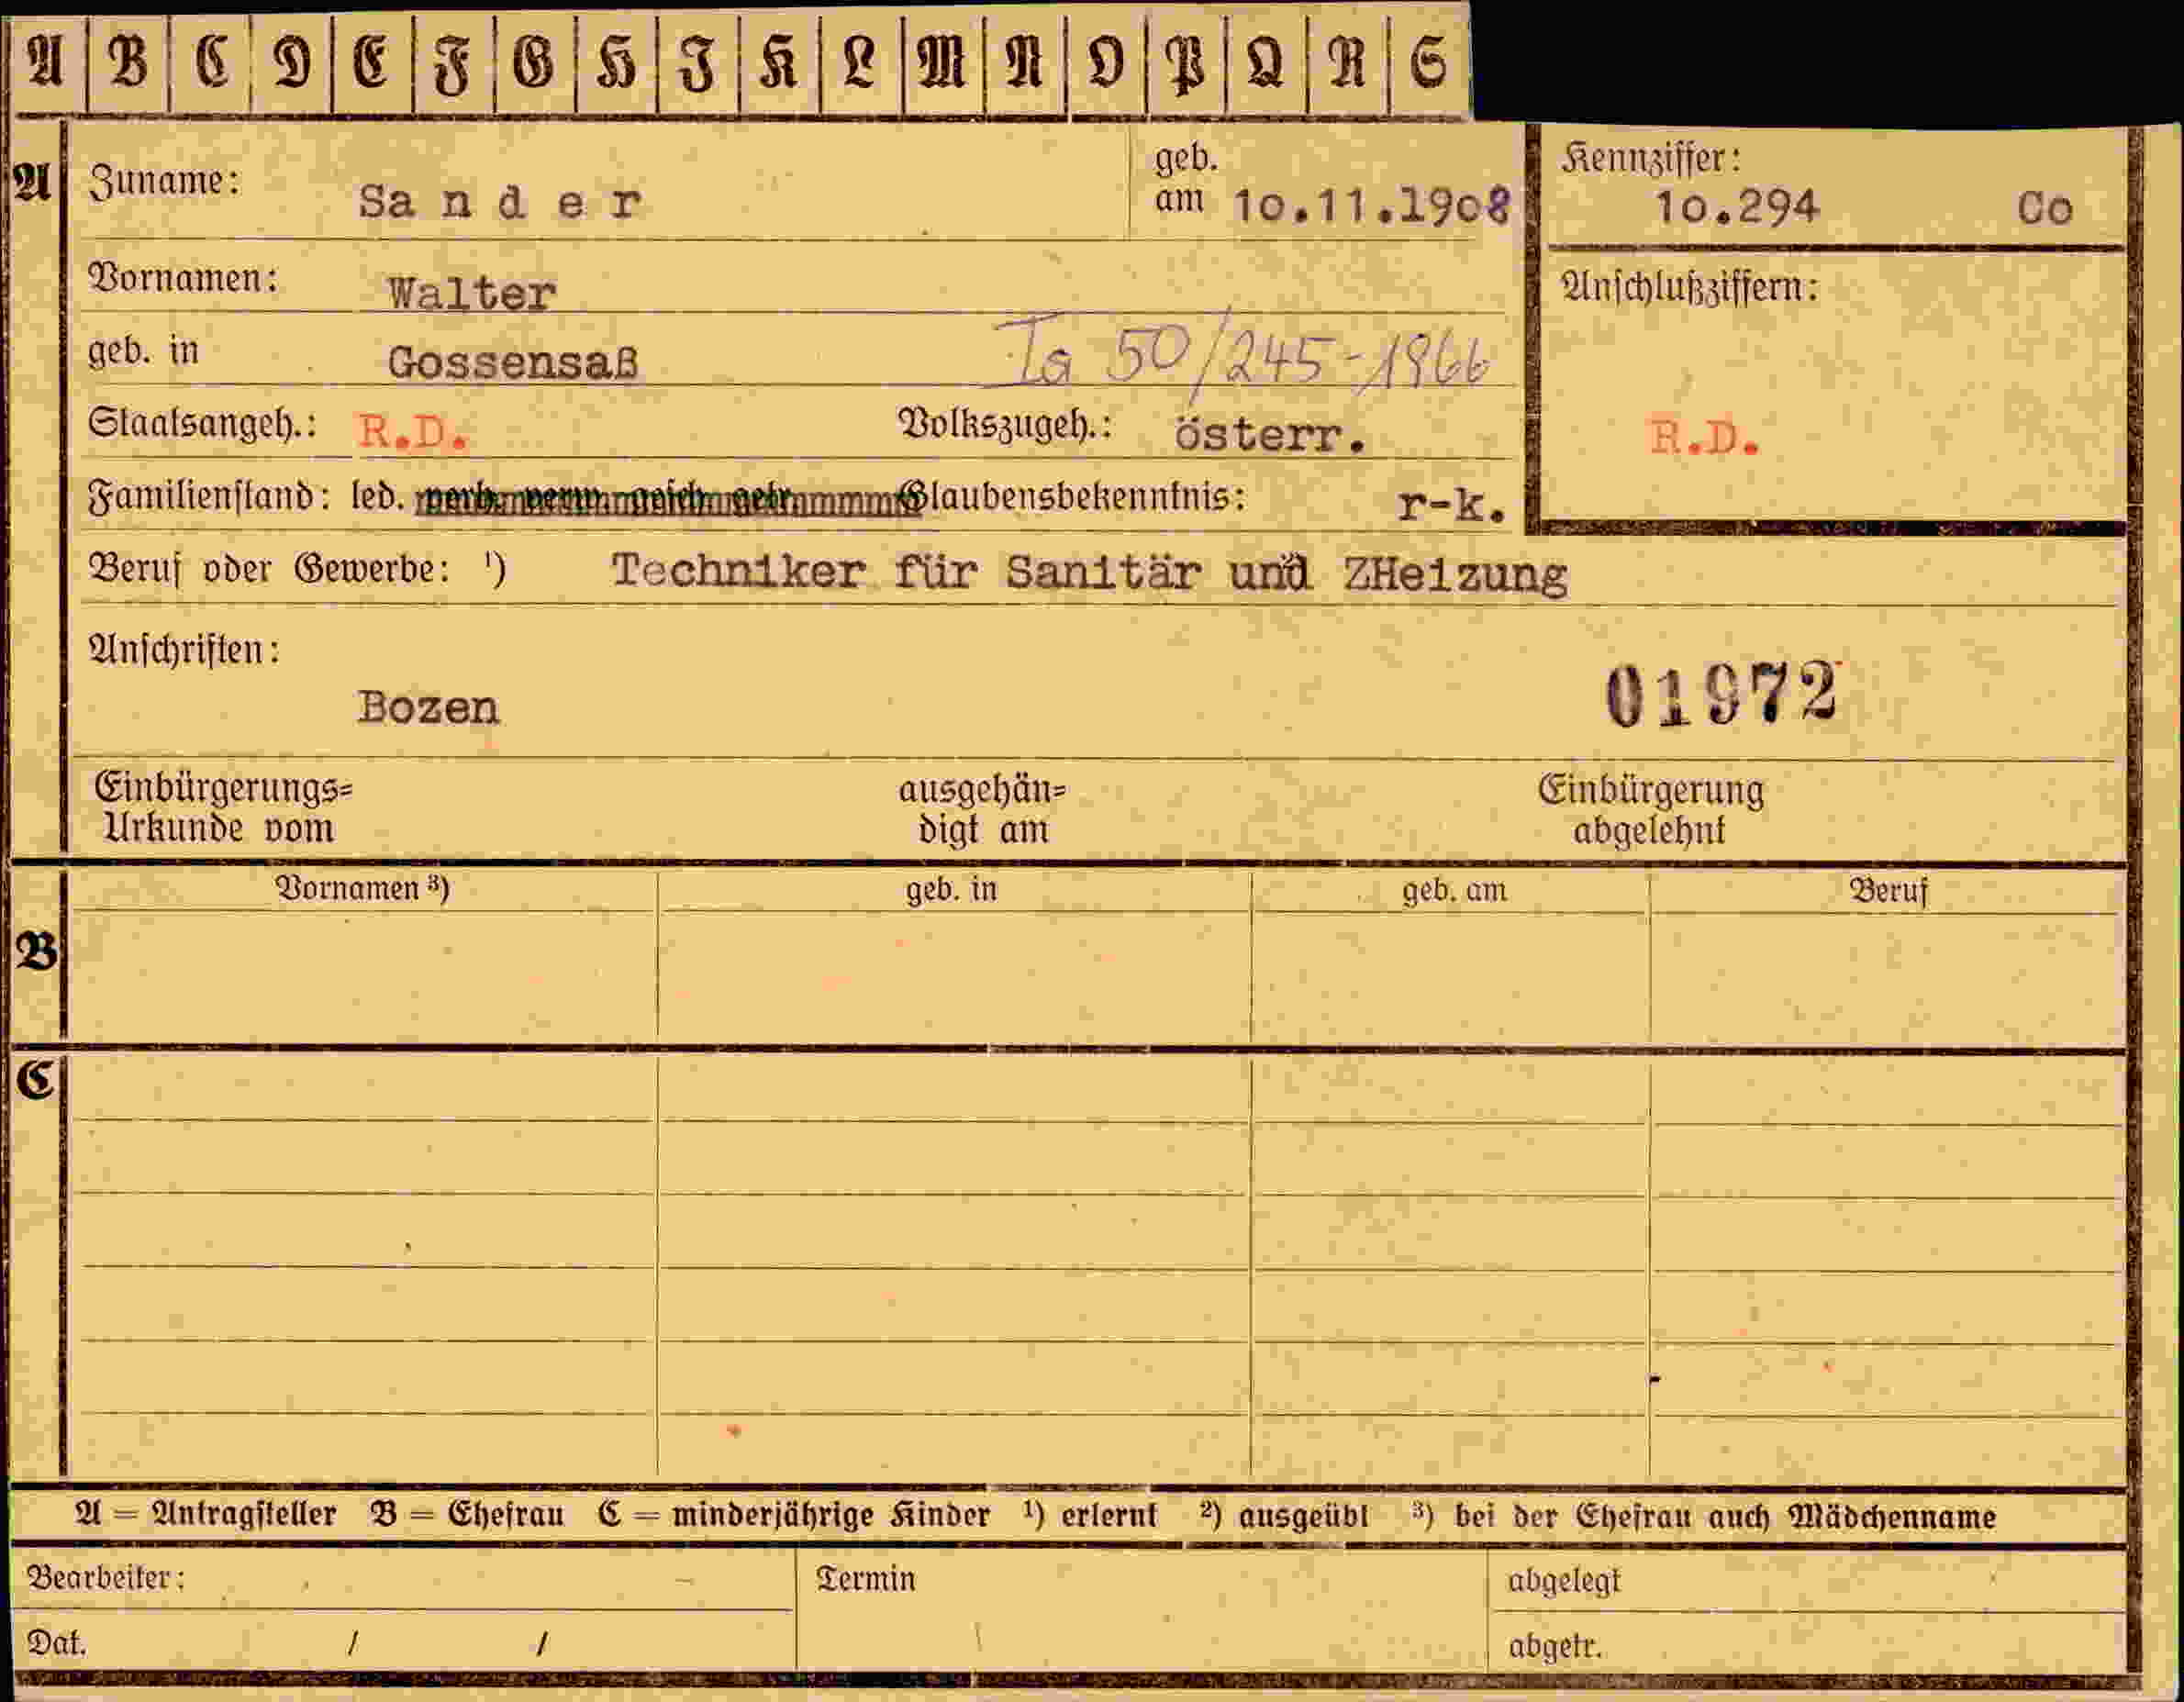 A B C D E F G H I K L M N O P Q R S
A
Zuname: Sa n d e r
geb. am 10.11.1908
Kennziffer: 10.294 Co
Vornamen: Walter
Anschlußziffern:
geb. in Gossensaß
Ia 50/245-1966
Staatsangeh.: R.D. Volkszugeh.: österr.
R.D.
Familienstand: led. verh. verw. gesch. getr. Glaubensbekenntnis: r-k.
Beruf oder Gewerbe: ¹) Techniker für Sanitär und ZHeizung
Anschriften:
Bozen
01972
Einbürgerungs=
Urkunde vom
ausgehän=
digt am
Einbürgerung
abgelehnt
Vornamen ³) geb. in geb. am Beruf
B
C
A = Antragsteller B = Ehefrau C = minderjährige Kinder ¹) erlernt ²) ausgeübt ³) bei der Ehefrau auch Mädchenname
Bearbeiter: Termin abgelegt
Dat. / / abgetr.